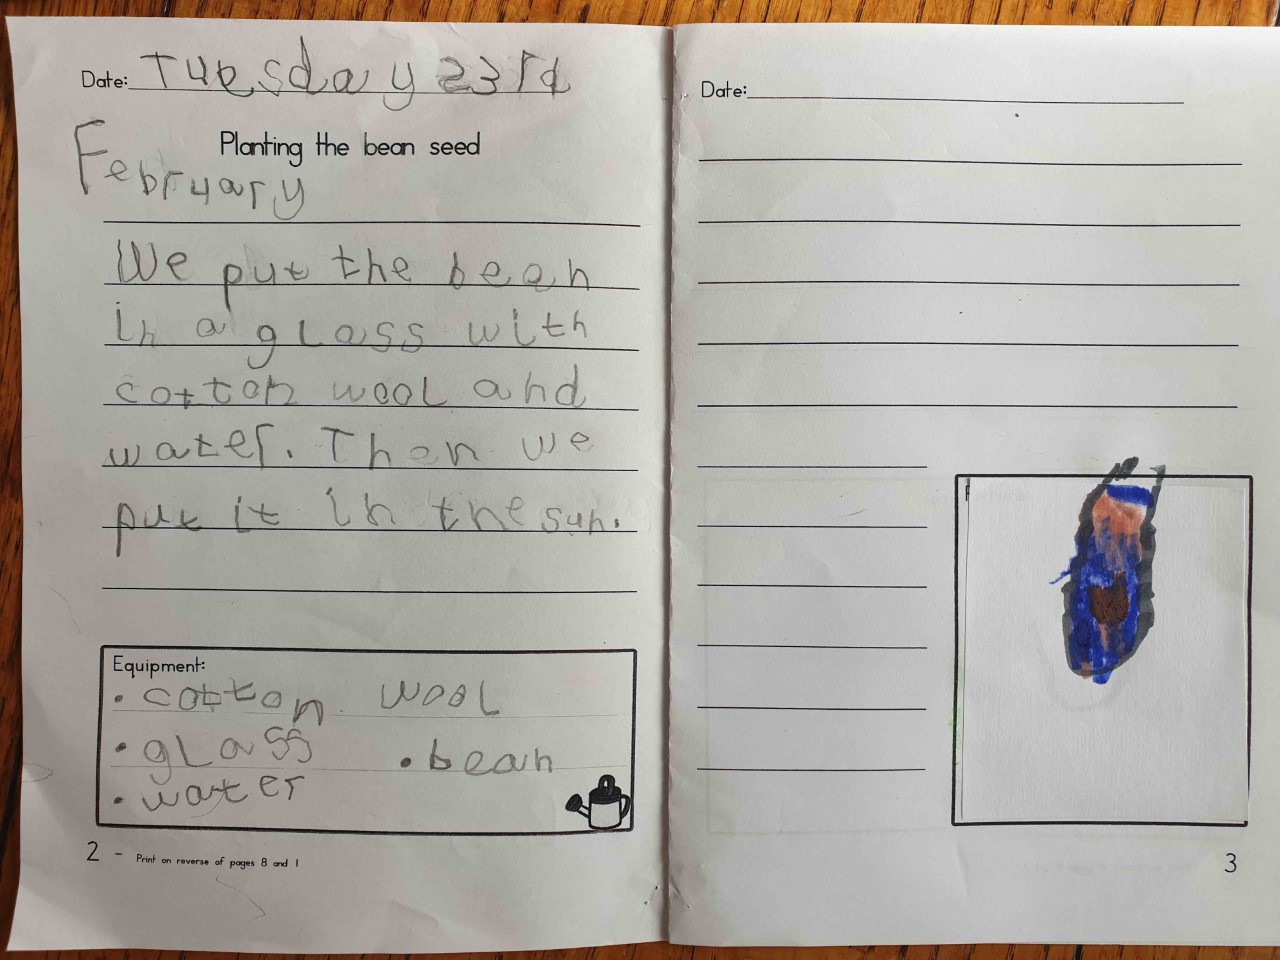 Date: Tuesday 23rd
February
Planting the bean seed
We put the bean
in a glass with
cotton wool and
water. Then we
put it in the sun.
Equipment:
• cotton wool
• glass • bean
• water
2 - Print on reverse of pages 8 and 1
Date:
3